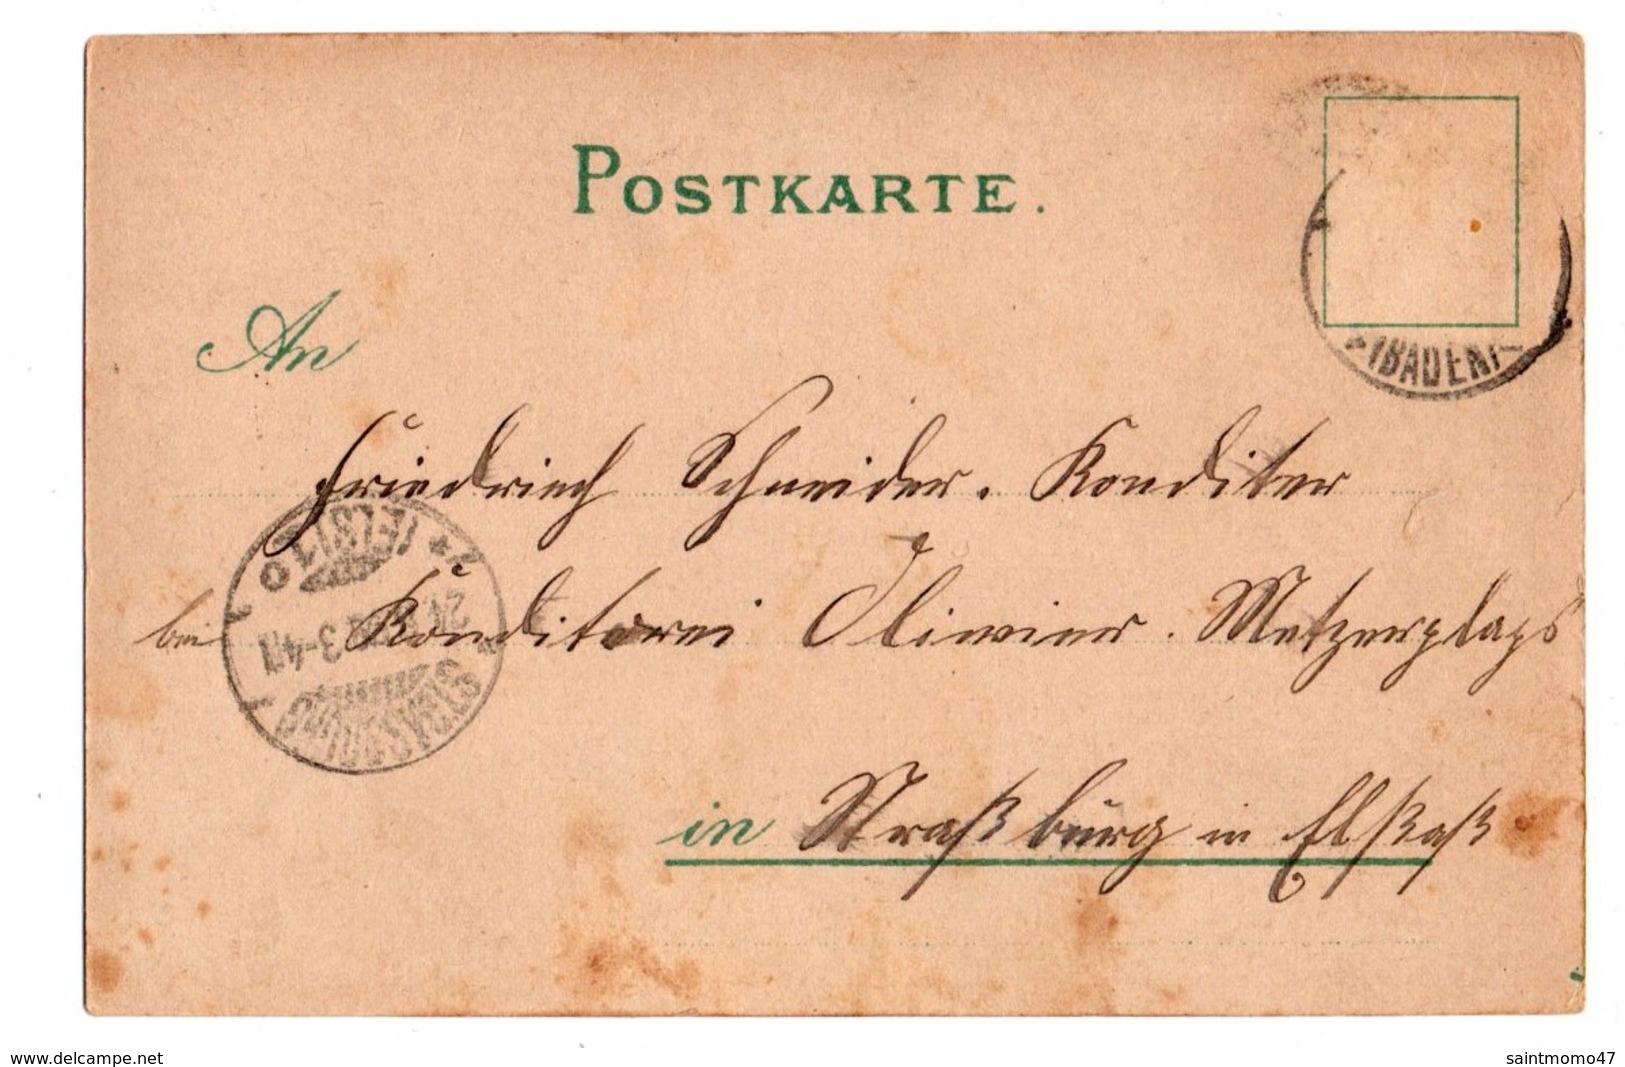 POSTKARTE.
(BADEN)
An
Friedrich Schneider. Konditer
bei Konditorei Oliwier. Metzerplatz
in Straßburg in Elsaß
STRASSBURG
3-4N
(ELS) 1
www.delcampe.net
saintmomo47